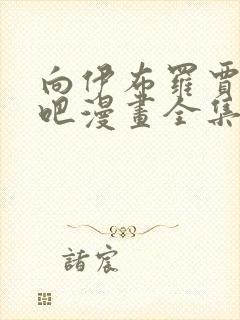 向伊布羅賈
吧漫畫全集
諸宸